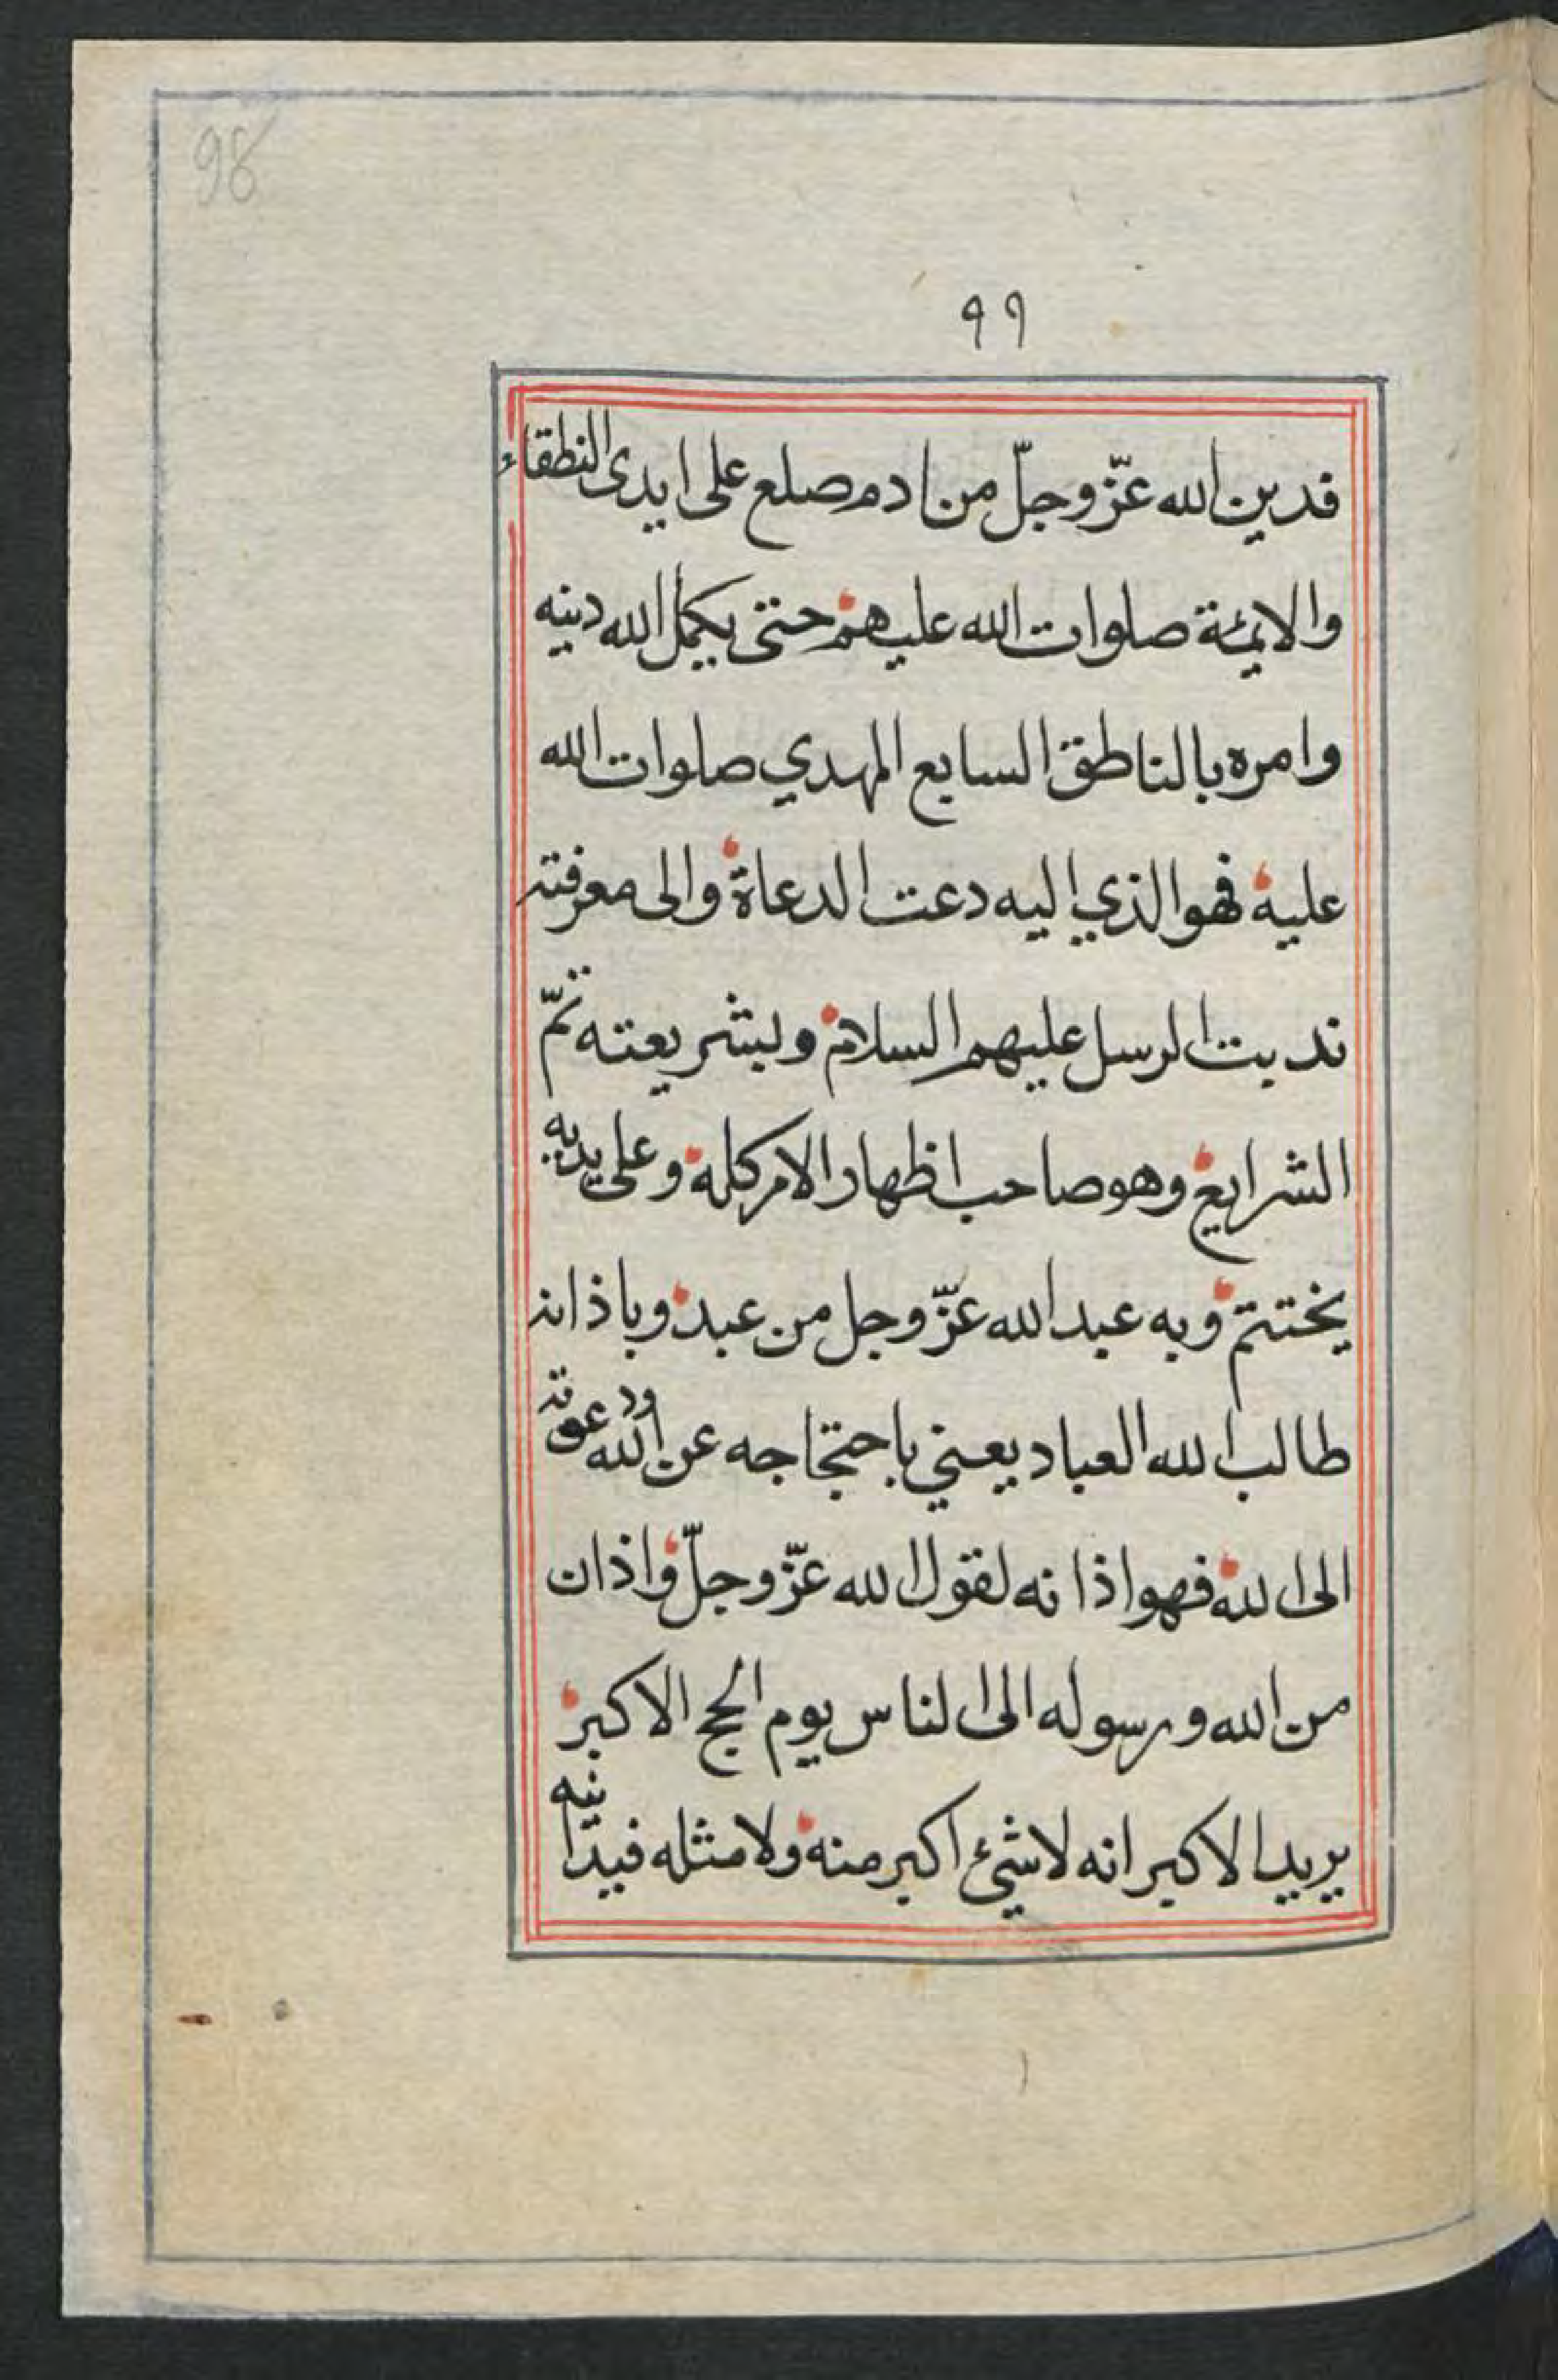 98
٩٩
فدين الله عزّ وجلّ من ادم صلع على ايدى النطقاء
والايمٔة صلوات الله عليهم حتى يكمل الله دينه
وامره بالناطق السابع المهدي صلوات الله
عليه فهو الذي اليه دعت الدعاة والى معرفته
ندبت الرسل عليهم السلام وبشريعته تمّ
الشرايع وهو صاحب اظهار الامر كله وعلى يديه
يختتم وبه عبد الله عزّ وجل من عبد وباذانه
طالب الله العباد يعني باحتجاجه عن الله ودعوته
الى الله فهو اذانه لقول الله عزّ وجلّ واذان
من الله ورسوله الى الناس يوم الحج الاكبر
يريد الاكبر انه لا شئ اكبر منه ولا مثله فبدانيه